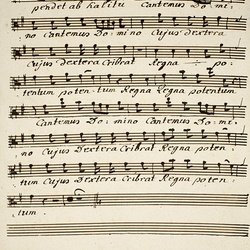 pendet ab halitu Cantemus Do- mi-
no Cantemus Do- mino Cujus dextera
Cujus Dextera Cribrat Regna ÷ po-
tentum poten- tum Regna Regna potentum
Cantemus Do- mino Cantemus Do- mi-
no Cujus Dextera Cribrat Regna poten-
tum Cujus Dextera Cribrat Regna poten-
tum.